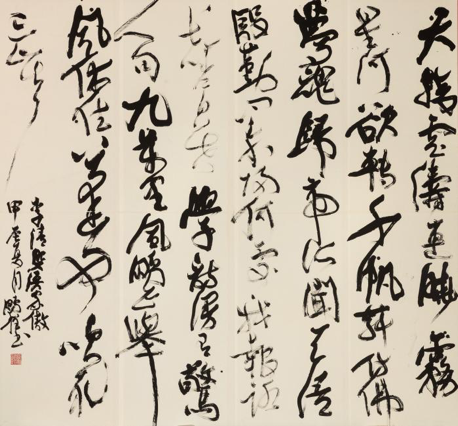 天接雲濤連曉霧
星河欲轉千帆舞仿佛
夢魂歸帝所聞天語
殷勤問我歸何處我報路
長嗟日暮學詩謾有驚
人句九萬里風鵬正舉
風休住蓬舟吹取
三山去
李清照漁家傲
甲辰